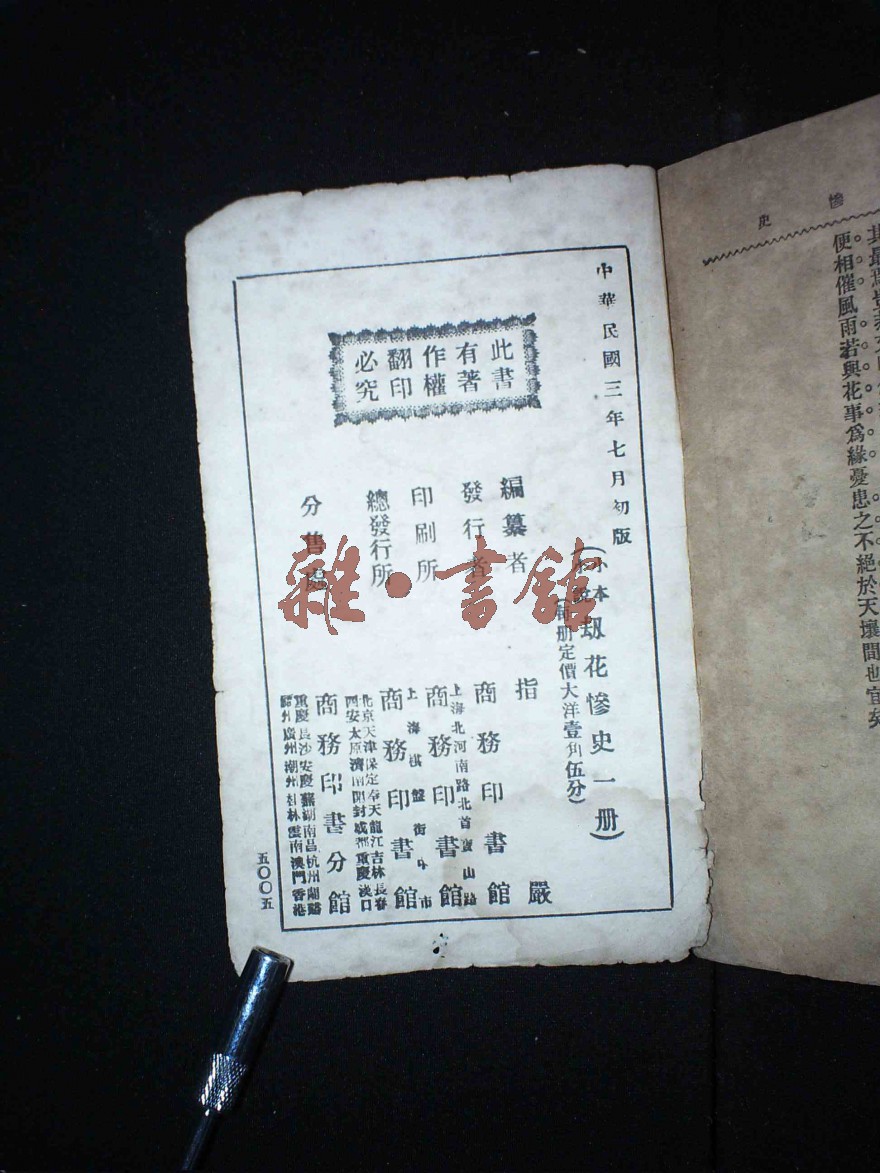 慘史
便相催風雨若與花事爲緣憂患之不絕於天壤間也宜矣
中華民國三年七月初版
此書
有著
作權
翻印
必究
(小本小說劫花慘史一册)
(每册定價大洋壹角伍分)
編纂者 指嚴
發行者 商務印書館
上海北河南路北首寶山路
印刷所 商務印書館
上海棋盤街中市
總發行所 商務印書館
北京天津保定奉天龍江吉林長春
西安太原濟南開封成都重慶漢口
分售處 商務印書分館
重慶長沙安慶蕪湖南昌杭州蘭谿
廣州潮州桂林雲南澳門香港
五〇〇五
雜·書館